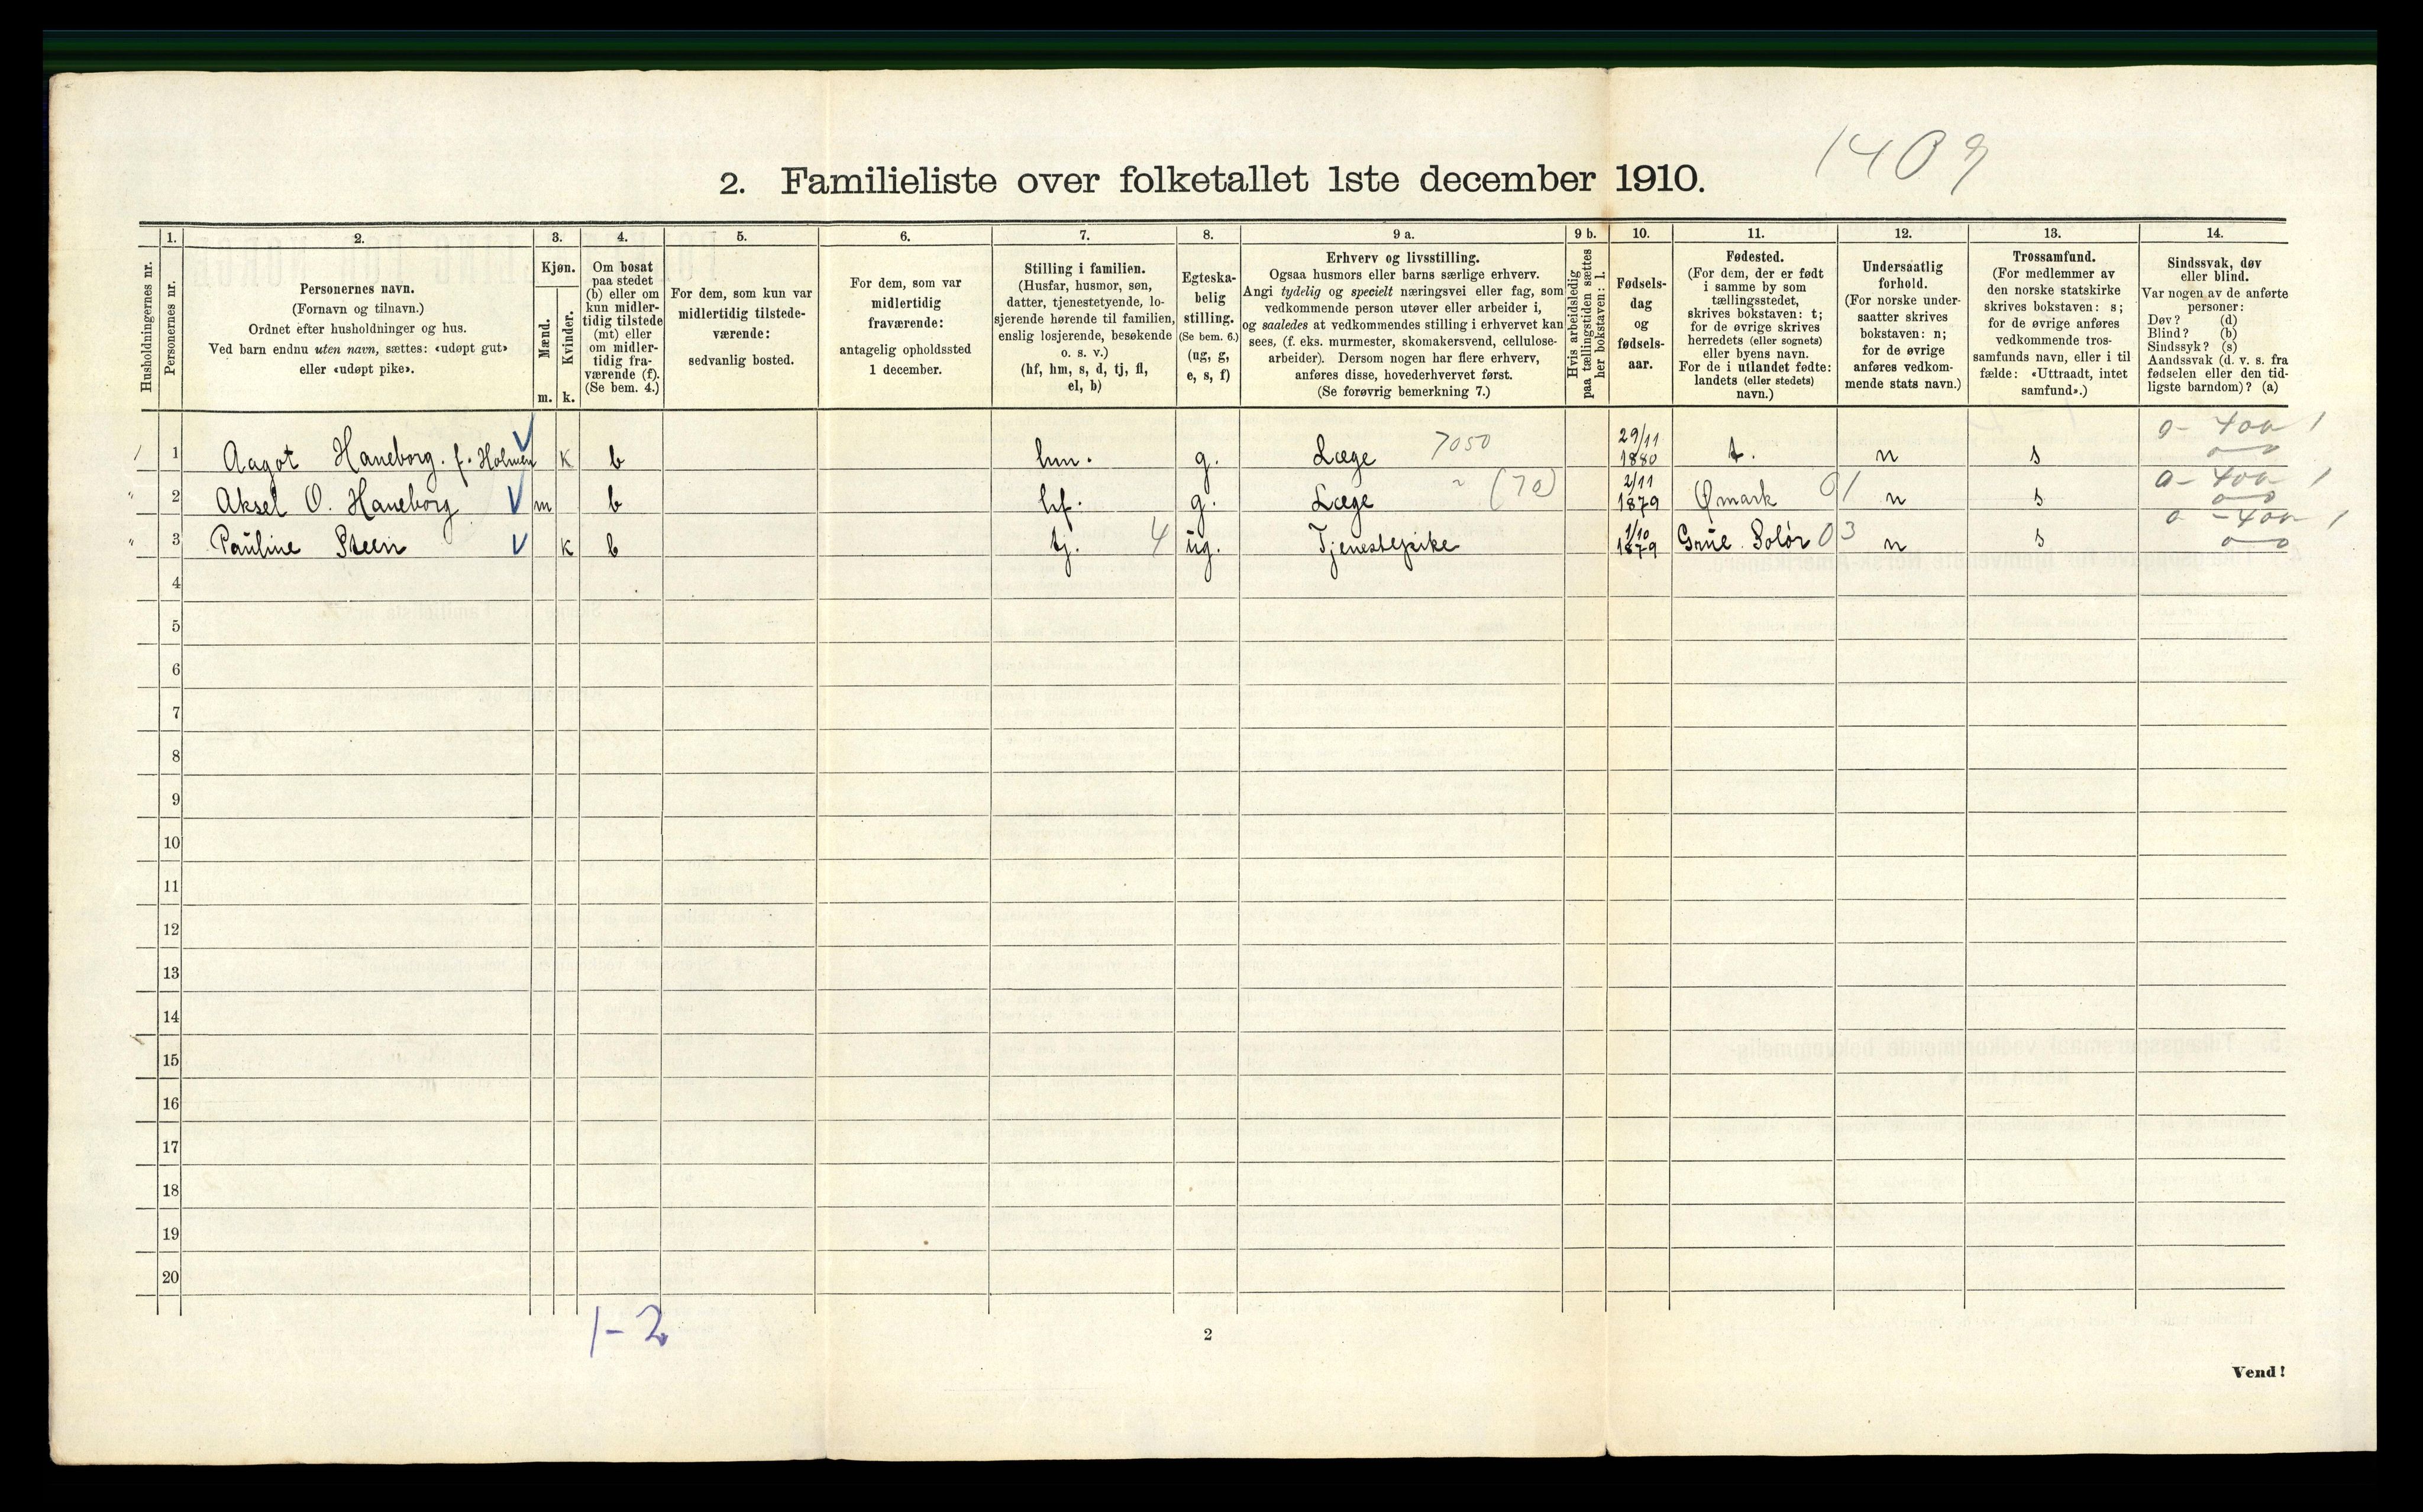 1409
2. Familieliste over folketallet 1ste december 1910.
Husholdningernes nr.
1.
Personernes nr.
2.
Personernes navn.
(Fornavn og tilnavn.)
Ordnet efter husholdninger og hus.
Ved barn endnu uten navn, sættes: «udøpt gut»
eller «udøpt pike».
3.
Kjøn.
Mænd.
m.
Kvinder.
k.
4.
Om bosat
paa stedet
(b) eller om
kun midler-
tidig tilstede
(mt) eller
om midler-
tidig fra-
værende (f).
(Se bem. 4.)
5.
For dem, som kun var
midlertidig tilstede-
værende:
sedvanlig bosted.
6.
For dem, som var
midlertidig
fraværende:
antagelig opholdssted
1 december.
7.
Stilling i familien.
(Husfar, husmor, søn,
datter, tjenestetyende, lo-
sjerende hørende til familien,
enslig losjerende, besøkende
o. s. v.)
(hf, hm, s, d, tj, fl,
el, b)
8.
Egteska-
belig
stilling.
(Se bem. 6.)
(ug, g,
e, s, f)
9 a.
Erhverv og livsstilling.
Ogsaa husmors eller barns særlige erhverv.
Angi tydelig og specielt næringsvei eller fag, som
vedkommende person utøver eller arbeider i,
og saaledes at vedkommendes stilling i erhvervet kan
sees, (f. eks. murmester, skomakersvend, cellulose-
arbeider). Dersom nogen har flere erhverv,
anføres disse, hovederhvervet først.
(Se forøvrig bemerkning 7.)
9 b.
Hvis arbeidsledig
paa tællingstiden sættes
her bokstaven: l.
10.
Fødsels-
dag
og
fødsels-
aar.
11.
Fødested.
(For dem, der er født
i samme by som
tællingsstedet,
skrives bokstaven: t;
for de øvrige skrives
herredets (eller sognets)
eller byens navn.
For de i utlandet fødte:
landets (eller stedets)
navn.)
12.
Undersaatlig
forhold.
(For norske under-
saatter skrives
bokstaven: n;
for de øvrige
anføres vedkom-
mende stats navn.)
13.
Trossamfund.
(For medlemmer av
den norske statskirke
skrives bokstaven: s;
for de øvrige anføres
vedkommende tros-
samfunds navn, eller i til
fælde: «Uttraadt, intet
samfund».)
14.
Sindssvak, døv
eller blind.
Var nogen av de anførte
personer:
Døv? (d)
Blind? (b)
Sindssyk? (s)
Aandssvak (d. v. s. fra
fødselen eller den tid-
ligste barndom)? (a)
1 1 Aagot Haneborg. f. Holmen k b hm. g. Læge 7050 29/11 1880 t. n s
" 2 Aksel O. Haneborg m b hf. g. Læge " (70) 2/11 1879 Ømark 01 n s
" 3 Pauline Steen k b tj. 4 ug. Tjenestepike 1/10 1879 Grue Solør 03 n s
4
5
6
7
8
9
10
11
12
13
14
15
16
17
18
19
20
1-2
2
Vend!